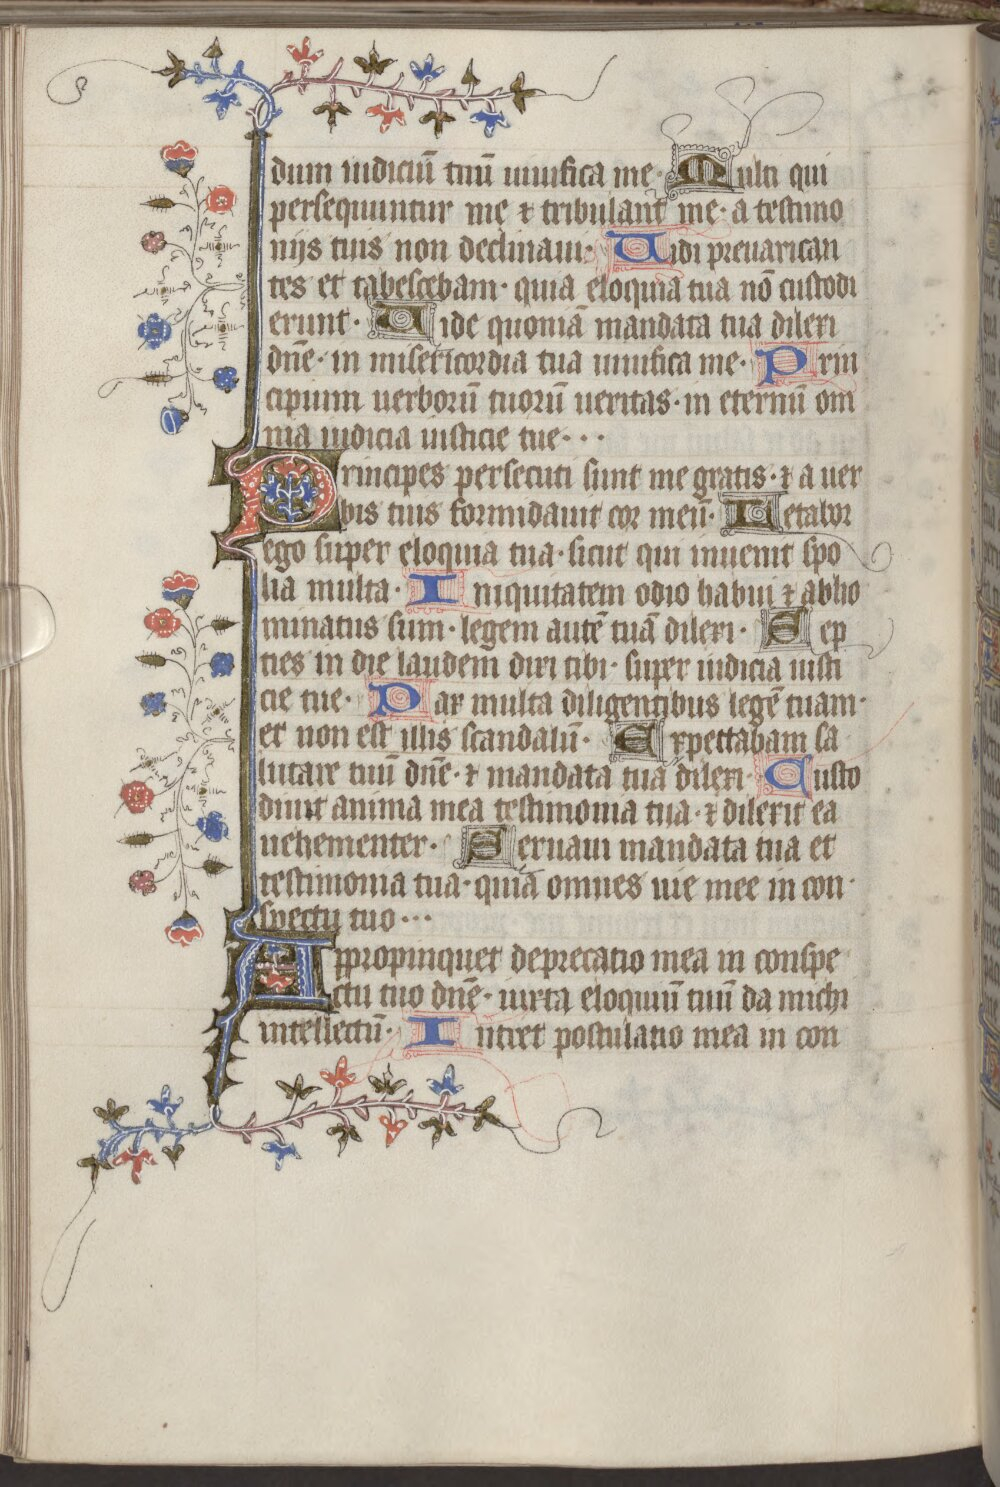 dum iudiciū tuū uiuifica me· Multi qui
persequuntur me ⁊ tribulant me· a testimo
nijs tuis non declinaui· Uidi preuarican
tes et tabescebam· quia eloquia tua nō custodi
erunt· Uide quoniā mandata tua dilexi
dn̄e· in misericordia tua uiuifica me· Prin
cipium uerborū tuorū ueritas· in eternū om
nia iudicia iusticie tue···
Principes persecuti sunt me gratis· ⁊ a uer
bis tuis formidauit cor meū· Letabor
ego super eloquia tua· sicut qui inuenit spo
lia multa· Iniquitatem odio habui ⁊ abho
minatus sum· legem autē tuā dilexi· Sep
ties in die laudem dixi tibi· super iudicia iusti
cie tue· Pax multa diligentibus legē tuam·
et non est illis scandalū· Expectabam sa
lutare tuū dn̄e· ⁊ mandata tua dilexi· Custo
diuit anima mea testimonia tua· ⁊ dilexit ea
uehementer· Seruaui mandata tua et
testimonia tua· quia omnes uie mee in con·
spectu tuo···
Appropinquet deprecatio mea in conspe
ctu tuo dn̄e· iuxta eloquiū tuū da michi
intellectū· Intret postulatio mea in con